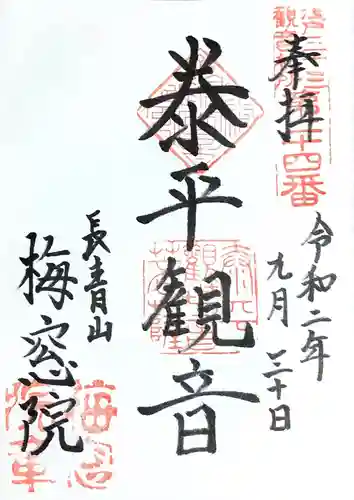 奉拝
令和二年
九月三十日
泰平観音
長青山
梅窓院